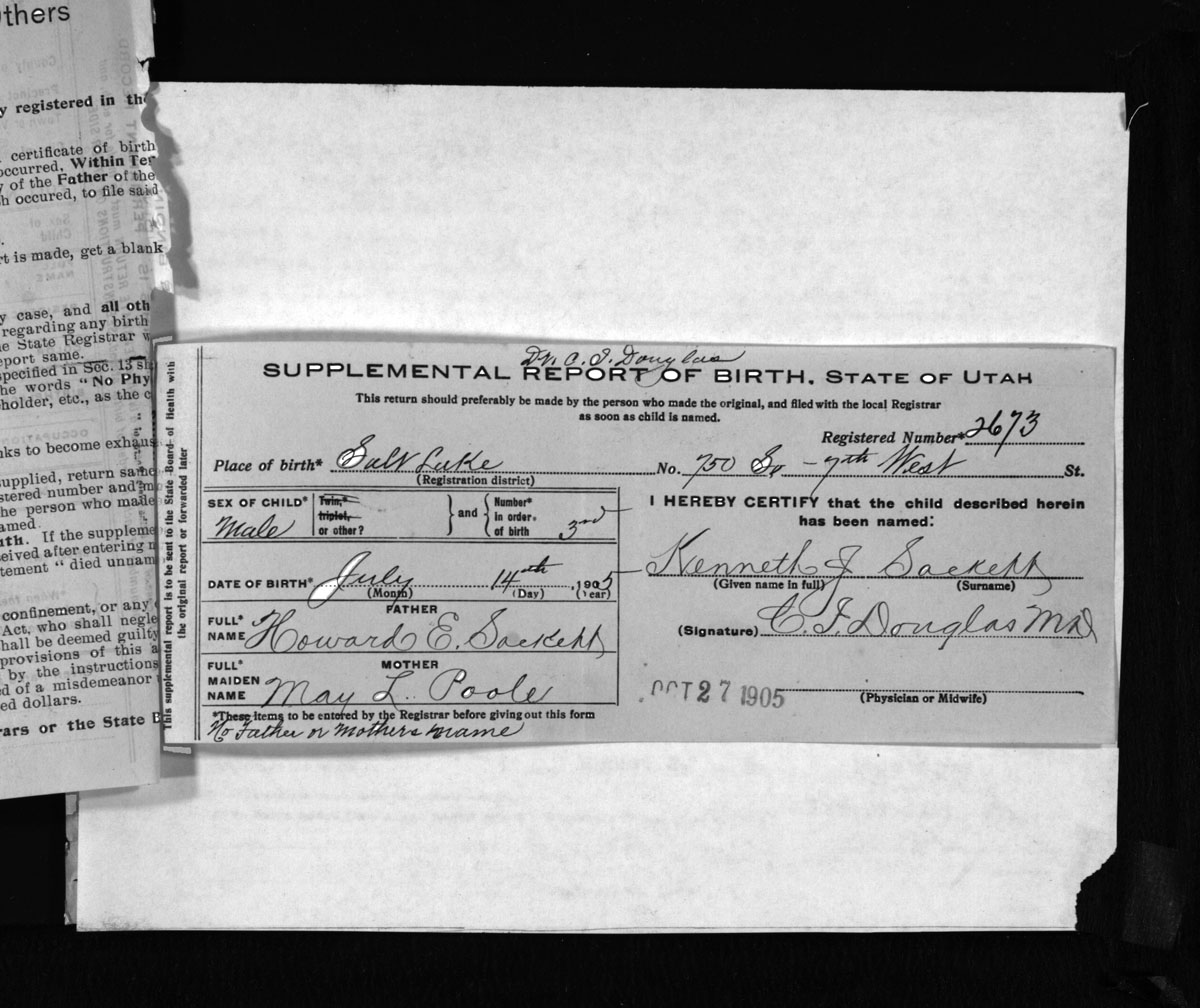 Others
y registered in the
certificate of birth
occurred, Within Ter
y of the Father of the
h occured, to file said
rt is made, get a blank
y case, and all oth
regarding any birth
e State Registrar
eport same.
specified in Sec. 13
he words "No Phy
holder, etc., as the c
nks to become exhaus
supplied, return same
stered number and
the person who made
amed.
If the suppleme
eived after entering
tement "died unnam
confinement, or any
Act, who shall negle
hall be deemed guilty
provisions of this a
by the instructions
d of a misdemeanor
ed dollars.
rars or the State B
This supplemental report is to be sent to the State Board of Health with
the original report or forwarded later
Dr. C. F. Douglas
SUPPLEMENTAL REPORT OF BIRTH, STATE OF UTAH
This return should preferably be made by the person who made the original, and filed with the local Registrar
as soon as child is named.
Registered Number* 2673
Place of birth* Salt Lake No. 750 So - 7th West St.
(Registration district)
SEX OF CHILD* Male
Twin,*
triplet,
or other?
and
Number*
in order
of birth 3rd
I HEREBY CERTIFY that the child described herein
has been named:
DATE OF BIRTH* July 14th, 1905
(Month) (Day) (Year)
Kenneth J Sackett
(Given name in full) (Surname)
FATHER
FULL*
NAME Howard E. Sackett
(Signature) C. F. Douglas MD
MOTHER
FULL*
MAIDEN
NAME May L. Poole
OCT 27 1905
(Physician or Midwife)
*These items to be entered by the Registrar before giving out this form
No Father or Mothers name